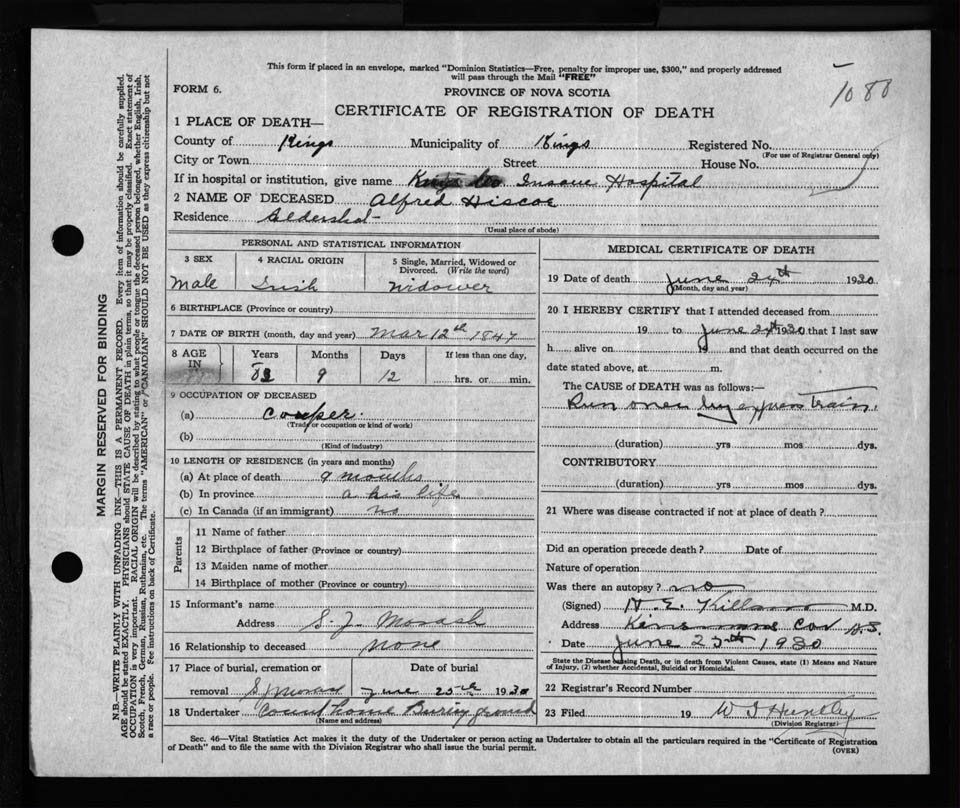 This form if placed in an envelope, marked "Dominion Statistics—Free, penalty for improper use, $300," and properly addressed
will pass through the Mail "FREE"
1088
FORM 6.
PROVINCE OF NOVA SCOTIA
CERTIFICATE OF REGISTRATION OF DEATH
1 PLACE OF DEATH—
County of Kings Municipality of Kings Registered No.
(For use of Registrar General only)
City or Town Street House No.
If in hospital or institution, give name Kings Co Insane Hospital
2 NAME OF DECEASED Alfred Hiscoe
Residence
(Usual place of abode)
PERSONAL AND STATISTICAL INFORMATION
3 SEX 4 RACIAL ORIGIN 5 Single, Married, Widowed or
Divorced. (Write the word)
Male Irish Widower
6 BIRTHPLACE (Province or country)
7 DATE OF BIRTH (month, day and year) Mar 12th 1847
8 AGE IN Years Months Days If less than one day,
83 9 12 hrs. or min.
9 OCCUPATION OF DECEASED
(a) Couper.
(Trade or occupation or kind of work)
(b)
(Kind of industry)
10 LENGTH OF RESIDENCE (in years and months)
(a) At place of death 9 months
(b) In province his life
(c) In Canada (if an immigrant) no
Parents
11 Name of father
12 Birthplace of father (Province or country)
13 Maiden name of mother
14 Birthplace of mother (Province or country)
15 Informant's name
Address S. J. Morash
16 Relationship to deceased none
17 Place of burial, cremation or Date of burial
removal June 1930
18 Undertaker County home Burying ground
(Name and address)
MEDICAL CERTIFICATE OF DEATH
19 Date of death June 24th 1930
(Month, day and year)
20 I HEREBY CERTIFY that I attended deceased from
19 to June 24 1930 that I last saw
h alive on 19 and that death occurred on the
date stated above, at m.
The CAUSE of DEATH was as follows:—
Run over by express train.
(duration) yrs mos dys.
CONTRIBUTORY
(duration) yrs mos dys.
21 Where was disease contracted if not at place of death?
Did an operation precede death? Date of
Nature of operation
Was there an autopsy? no
(Signed) N. E. M.D.
Address N.S.
Date June 25th 1930
State the Disease causing Death, or in death from Violent Causes, state (1) Means and Nature
of Injury, (2) whether Accidental, Suicidal or Homicidal.
22 Registrar's Record Number
23 Filed 19 W J Huntley
(Division Registrar)
Sec. 46—Vital Statistics Act makes it the duty of the Undertaker or person acting as Undertaker to obtain all the particulars required in the "Certificate of Registration
of Death" and to file the same with the Division Registrar who shall issue the burial permit.
(OVER)
MARGIN RESERVED FOR BINDING
N.B.—WRITE PLAINLY WITH UNFADING INK—THIS IS A PERMANENT RECORD. Every item of information should be carefully supplied.
AGE should be stated EXACTLY. PHYSICIANS should STATE CAUSE OF DEATH in plain terms, so that it may be properly classified. Exact statement of
OCCUPATION is very important. RACIAL ORIGIN will be described by stating to what people or tongue the deceased person belonged, whether English, Irish,
Scotch, French, German, Russian, Ruthenian, etc. The terms "AMERICAN" or "CANADIAN" SHOULD NOT BE USED as they express citizenship but not
a race or people. See instructions on back of Certificate.